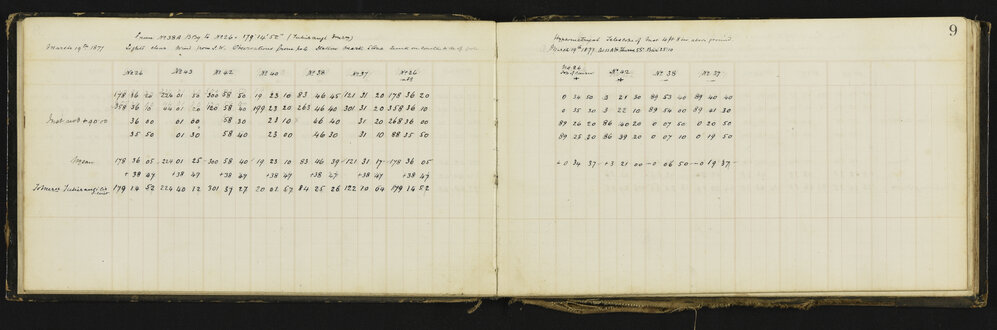 From No 38A Brg to No 26 = 179° 14' 52" (Tutukaugi Merid)
March 19th 1877 Light clear Wind from S.W. Observations from Sub Station
No 26 No 43 No 42 No 40 No 38 No 37 No 26
178 36 20 224 01 50 300 58 50 19 23 10 83 46 45 121 31 20 178 36 20
358 36 10 44 01 20 120 58 40 199 23 20 263 46 40 301 31 20 358 36 10
36 00 01 00 58 30 23 10 46 40 31 20 268 36 00
35 50 01 30 58 40 23 00 46 30 31 10 88 35 50
Mean 178 36 05 224 01 25 300 58 40 19 23 10 83 46 39 121 31 17 178 36 05
+38 47 +38 47 +38 47 +38 47 +38 47 +38 47 +38 47
179 14 52 224 40 12 301 37 27 20 01 57 84 25 26 122 10 04 179 14 52
9
of Inst above ground
March 19th 1877
No 26 No 42 No 38 No 37
+ + – –
0 34 50 3 21 30 89 53 40 89 40 40
0 35 30 3 22 10 89 54 00 89 41 30
89 26 20 86 40 20 0 07 50 0 20 50
89 25 20 86 39 20 0 07 10 0 19 50
+0 34 37 +3 21 00 –0 06 50 –0 19 37